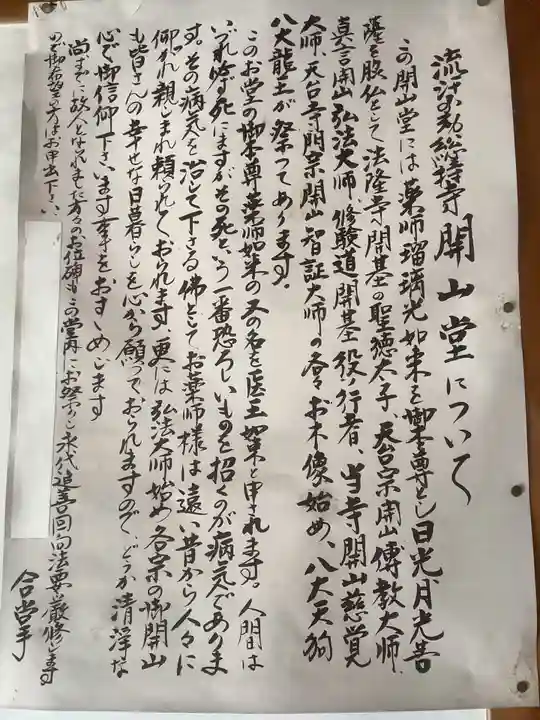 流汗山 總持寺 開山堂について
この開山堂には薬師瑠璃光如来を御本尊とし日光、月光菩
薩を脇仏として、法隆寺開基の聖徳太子、天台宗開山傳教大師、
真言開山弘法大師、修験道開基役ノ行者、当寺開山慈覚
大師、天台寺門宗開山智証大師の各々お木像始め、八大天狗
八大龍王が祭ってあります。
このお堂の御本尊薬師如来の又の名を医王如来と申されます。人間は
いづれ時ず死にますがその死と、う一番恐ろしいものを招くのが病気であります
す。その病気を治して下さる佛としてお薬師様は遠い昔から人々に
仰がれ親しまれ頼られておられます、更には弘法大師始め各宗の御開山
も皆さんの幸せな日暮らしを心から願っておられますので、どうか清浄な
心で御信仰下さいます事をおすゝめします
尚すでに故人となられました方々のお位碑もこの堂内にお祭りし永代追善回向法要も厳修します
ので御希望の方はお申出下さい
合掌